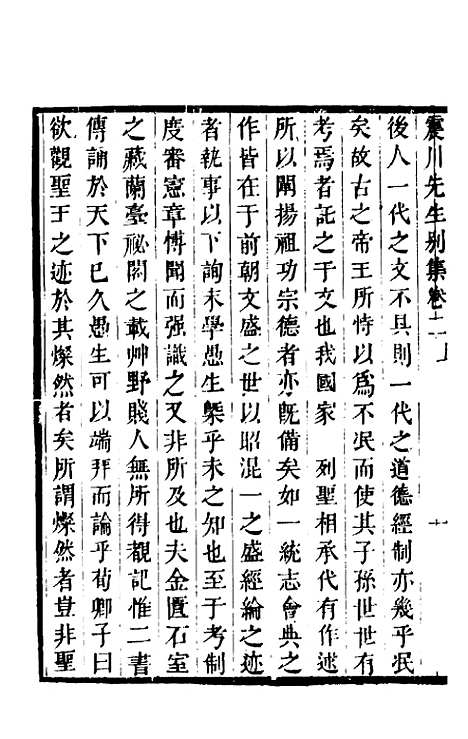 震川先生别集卷二上　十
後人一代之文不具則一代之道德經制亦幾乎泯
矣故古之帝王所恃以爲不泯而使其子孫世世有
考焉者託之于文也我國家　列聖相承代有作述
所以闡揚祖功宗德者亦旣備矣如一統志會典之
作皆在于前朝文盛之世以昭混一之盛經綸之迹
者執事以下詢末學愚生槩乎未之知也至于考制
度審憲章博聞而强識之又非所及也夫金匱石室
之藏蘭臺祕閣之載艸野賤人無所得覩記惟二書
傳誦於天下已久愚生可以端拜而論乎荀卿子曰
欲觀聖王之迹於其燦然者矣所謂燦然者豈非聖